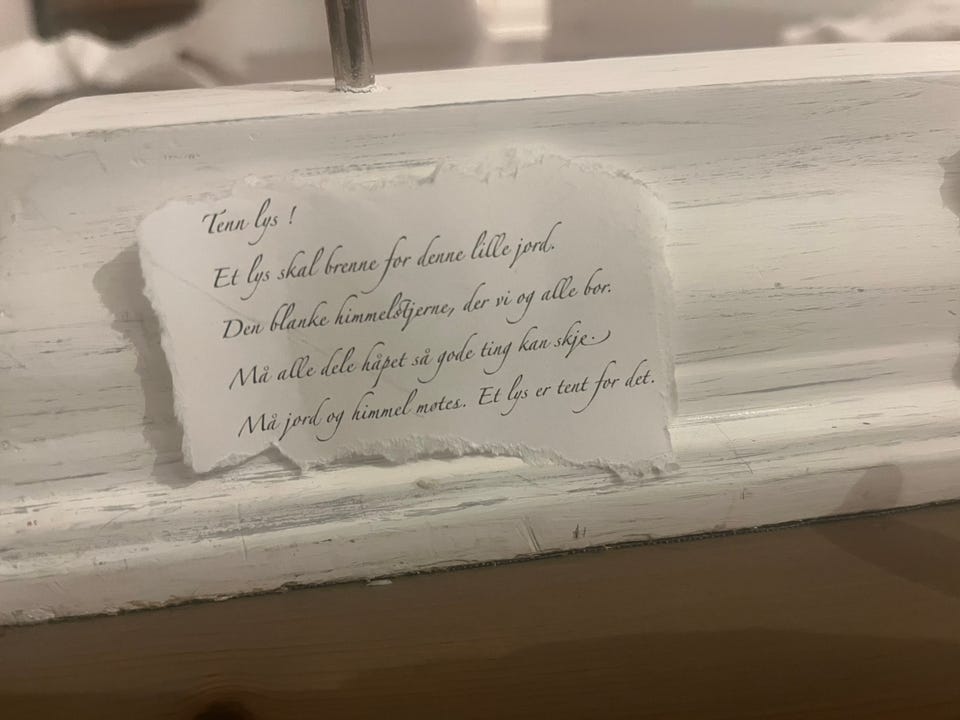 Tenn lys !
Et lys skal brenne for denne lille jord.
Den blanke himmelstjerne, der vi og alle bor.
Må alle dele håpet så gode ting kan skje.
Må jord og himmel møtes. Et lys er tent for det.